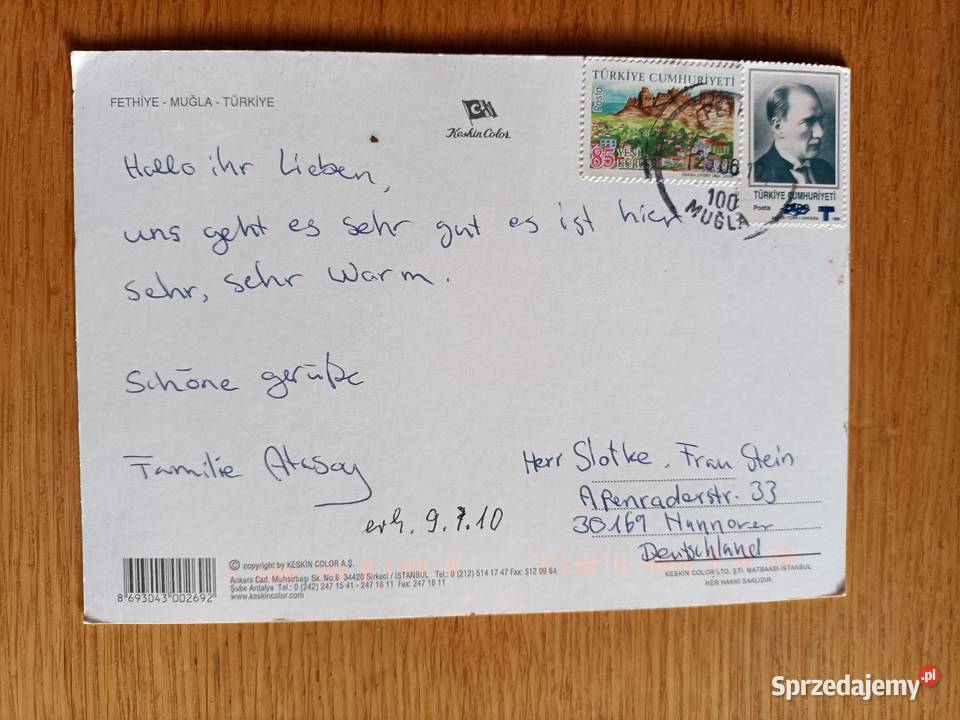 FETHİYE - MUĞLA - TÜRKİYE
Keskin Color
TÜRKİYE CUMHURİYETİ
Posta
85 YENİ
KURUŞ
25.06
100
MUĞLA
TÜRKİYE CUMHURİYETİ
Posta
T
Hallo ihr Lieben,
uns geht es sehr gut es ist hier
sehr, sehr warm.
Schöne gerüße
Familie Atasoy
erh. 9.7.10
Herr Slotke, Frau Stein
Apenraderstr. 33
30169 Hannover
Deutschland
8 693043 002692
© copyright by KESKİN COLOR A.Ş.
Ankara Cad. Muhsirbaşı Sk. No.6 34420 Sirkeci / İSTANBUL Tel.: 0 (212) 514 17 47 Fax: 512 09 64
Şube Antalya Tel.: 0 (242) 247 15 41 - 247 16 11 Fax: 247 16 11
www.keskincolor.com
KESKİN COLOR LTD. ŞTİ. MATBAASI-İSTANBUL
HER HAKKI SAKLIDIR.
Sprzedajemy.pl